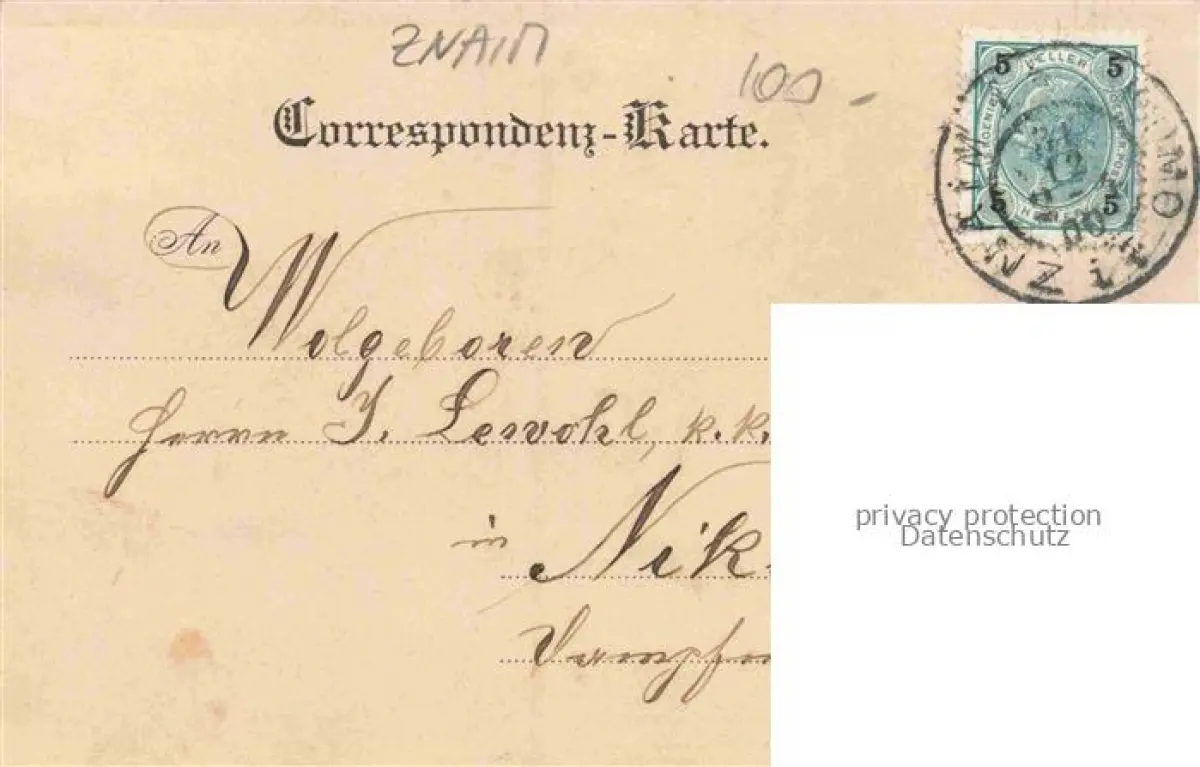 ZNAIM
100 -
Correspondenz-Karte.
5 HELLER 5
5 5
ZNAIM
ZNOJMO
12
00
An
Wolgeboren
Herrn J. Lewohl, k. k.
in Nik
privacy protection
Datenschutz